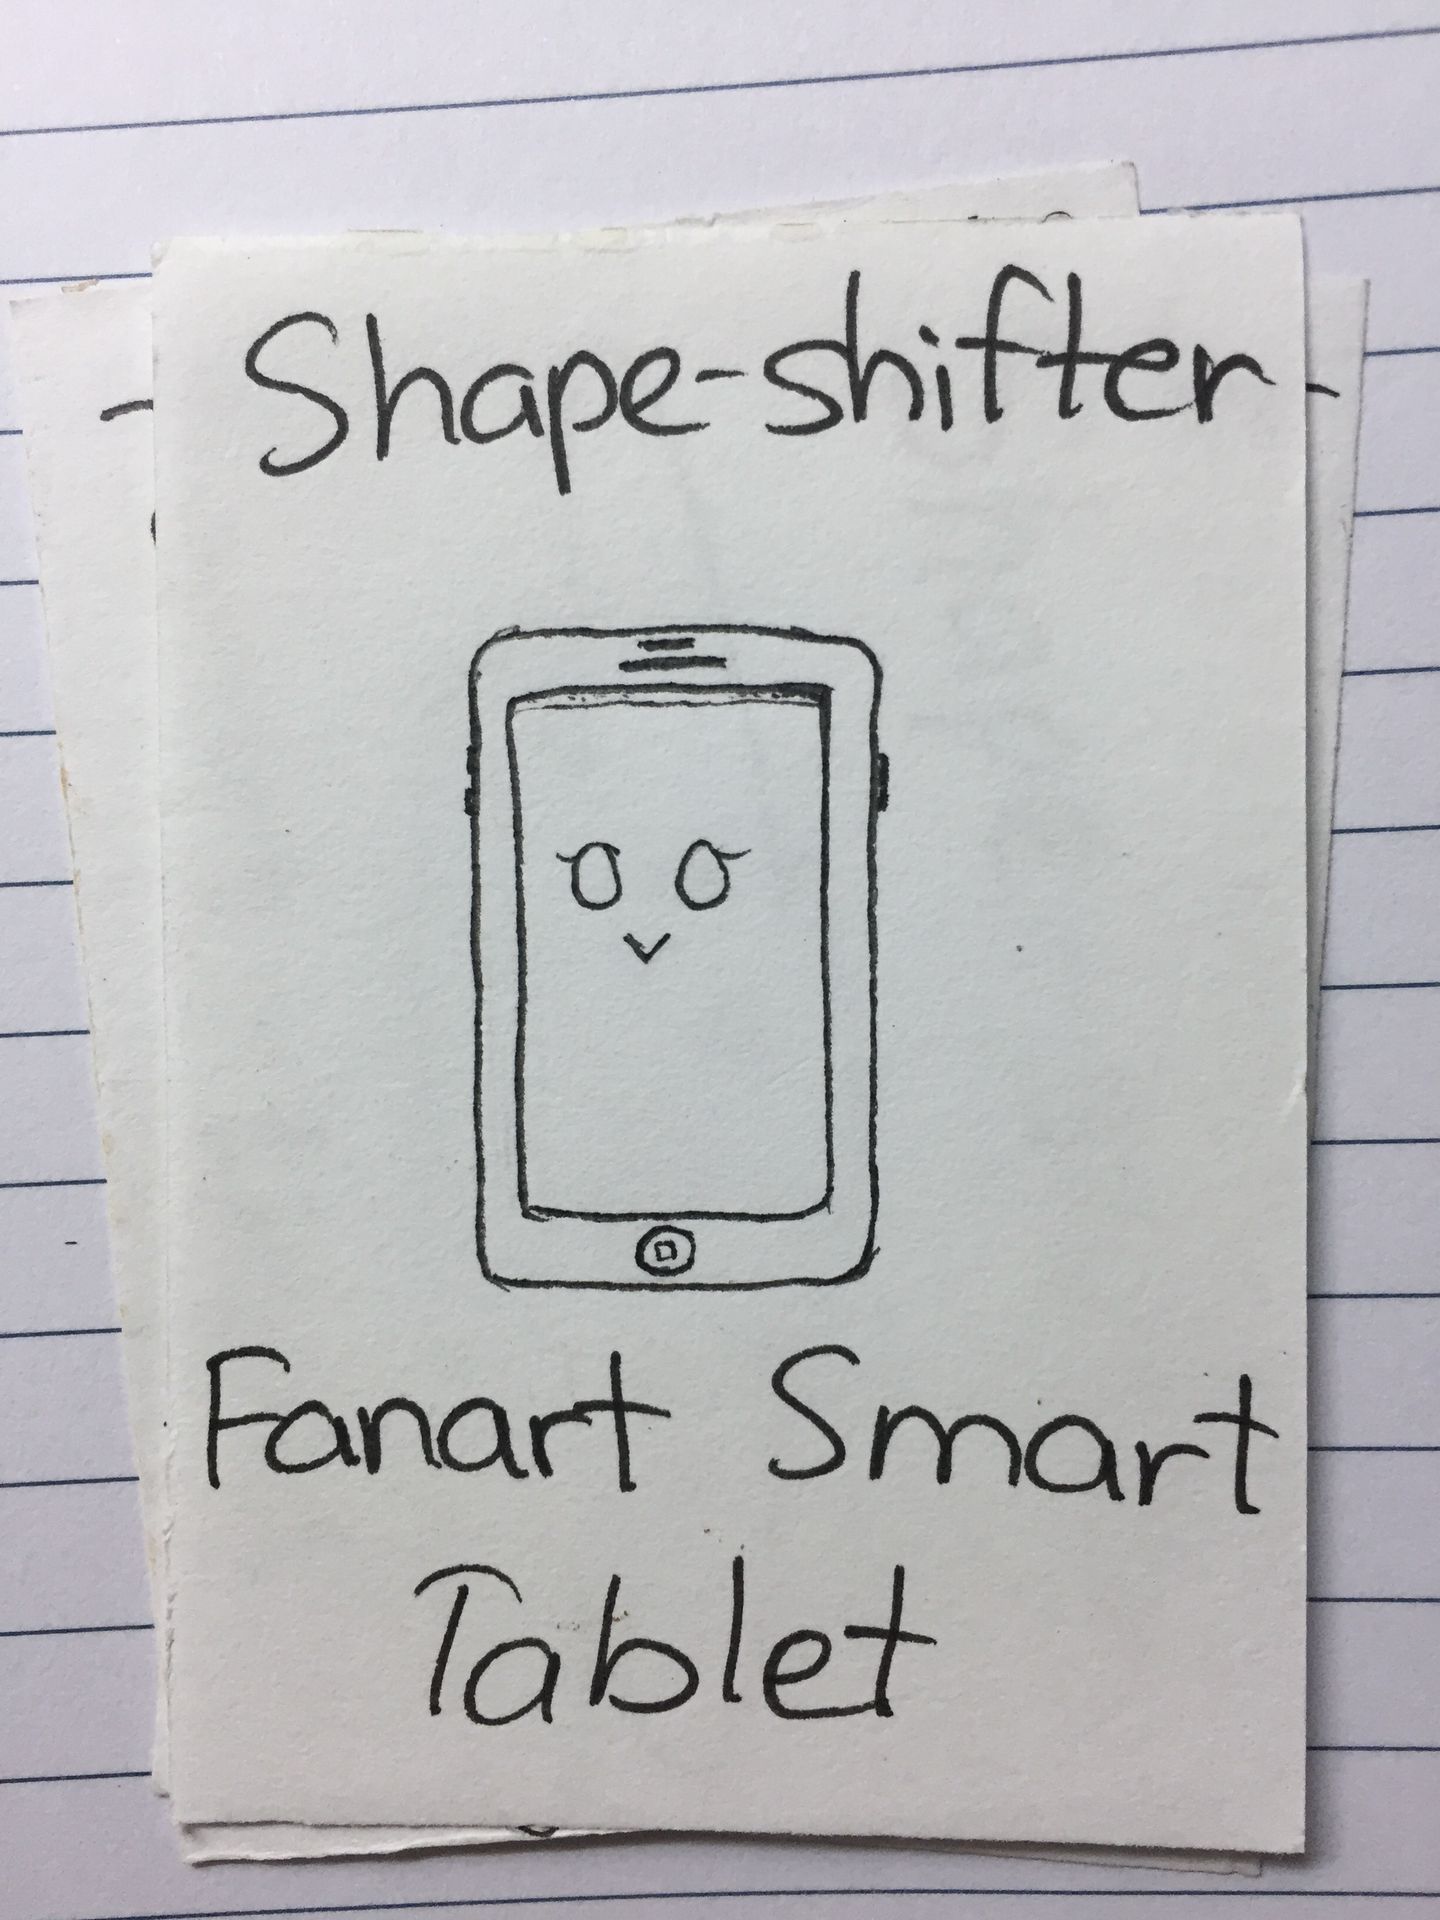 Shape-shifter
Fanart Smart
Tablet